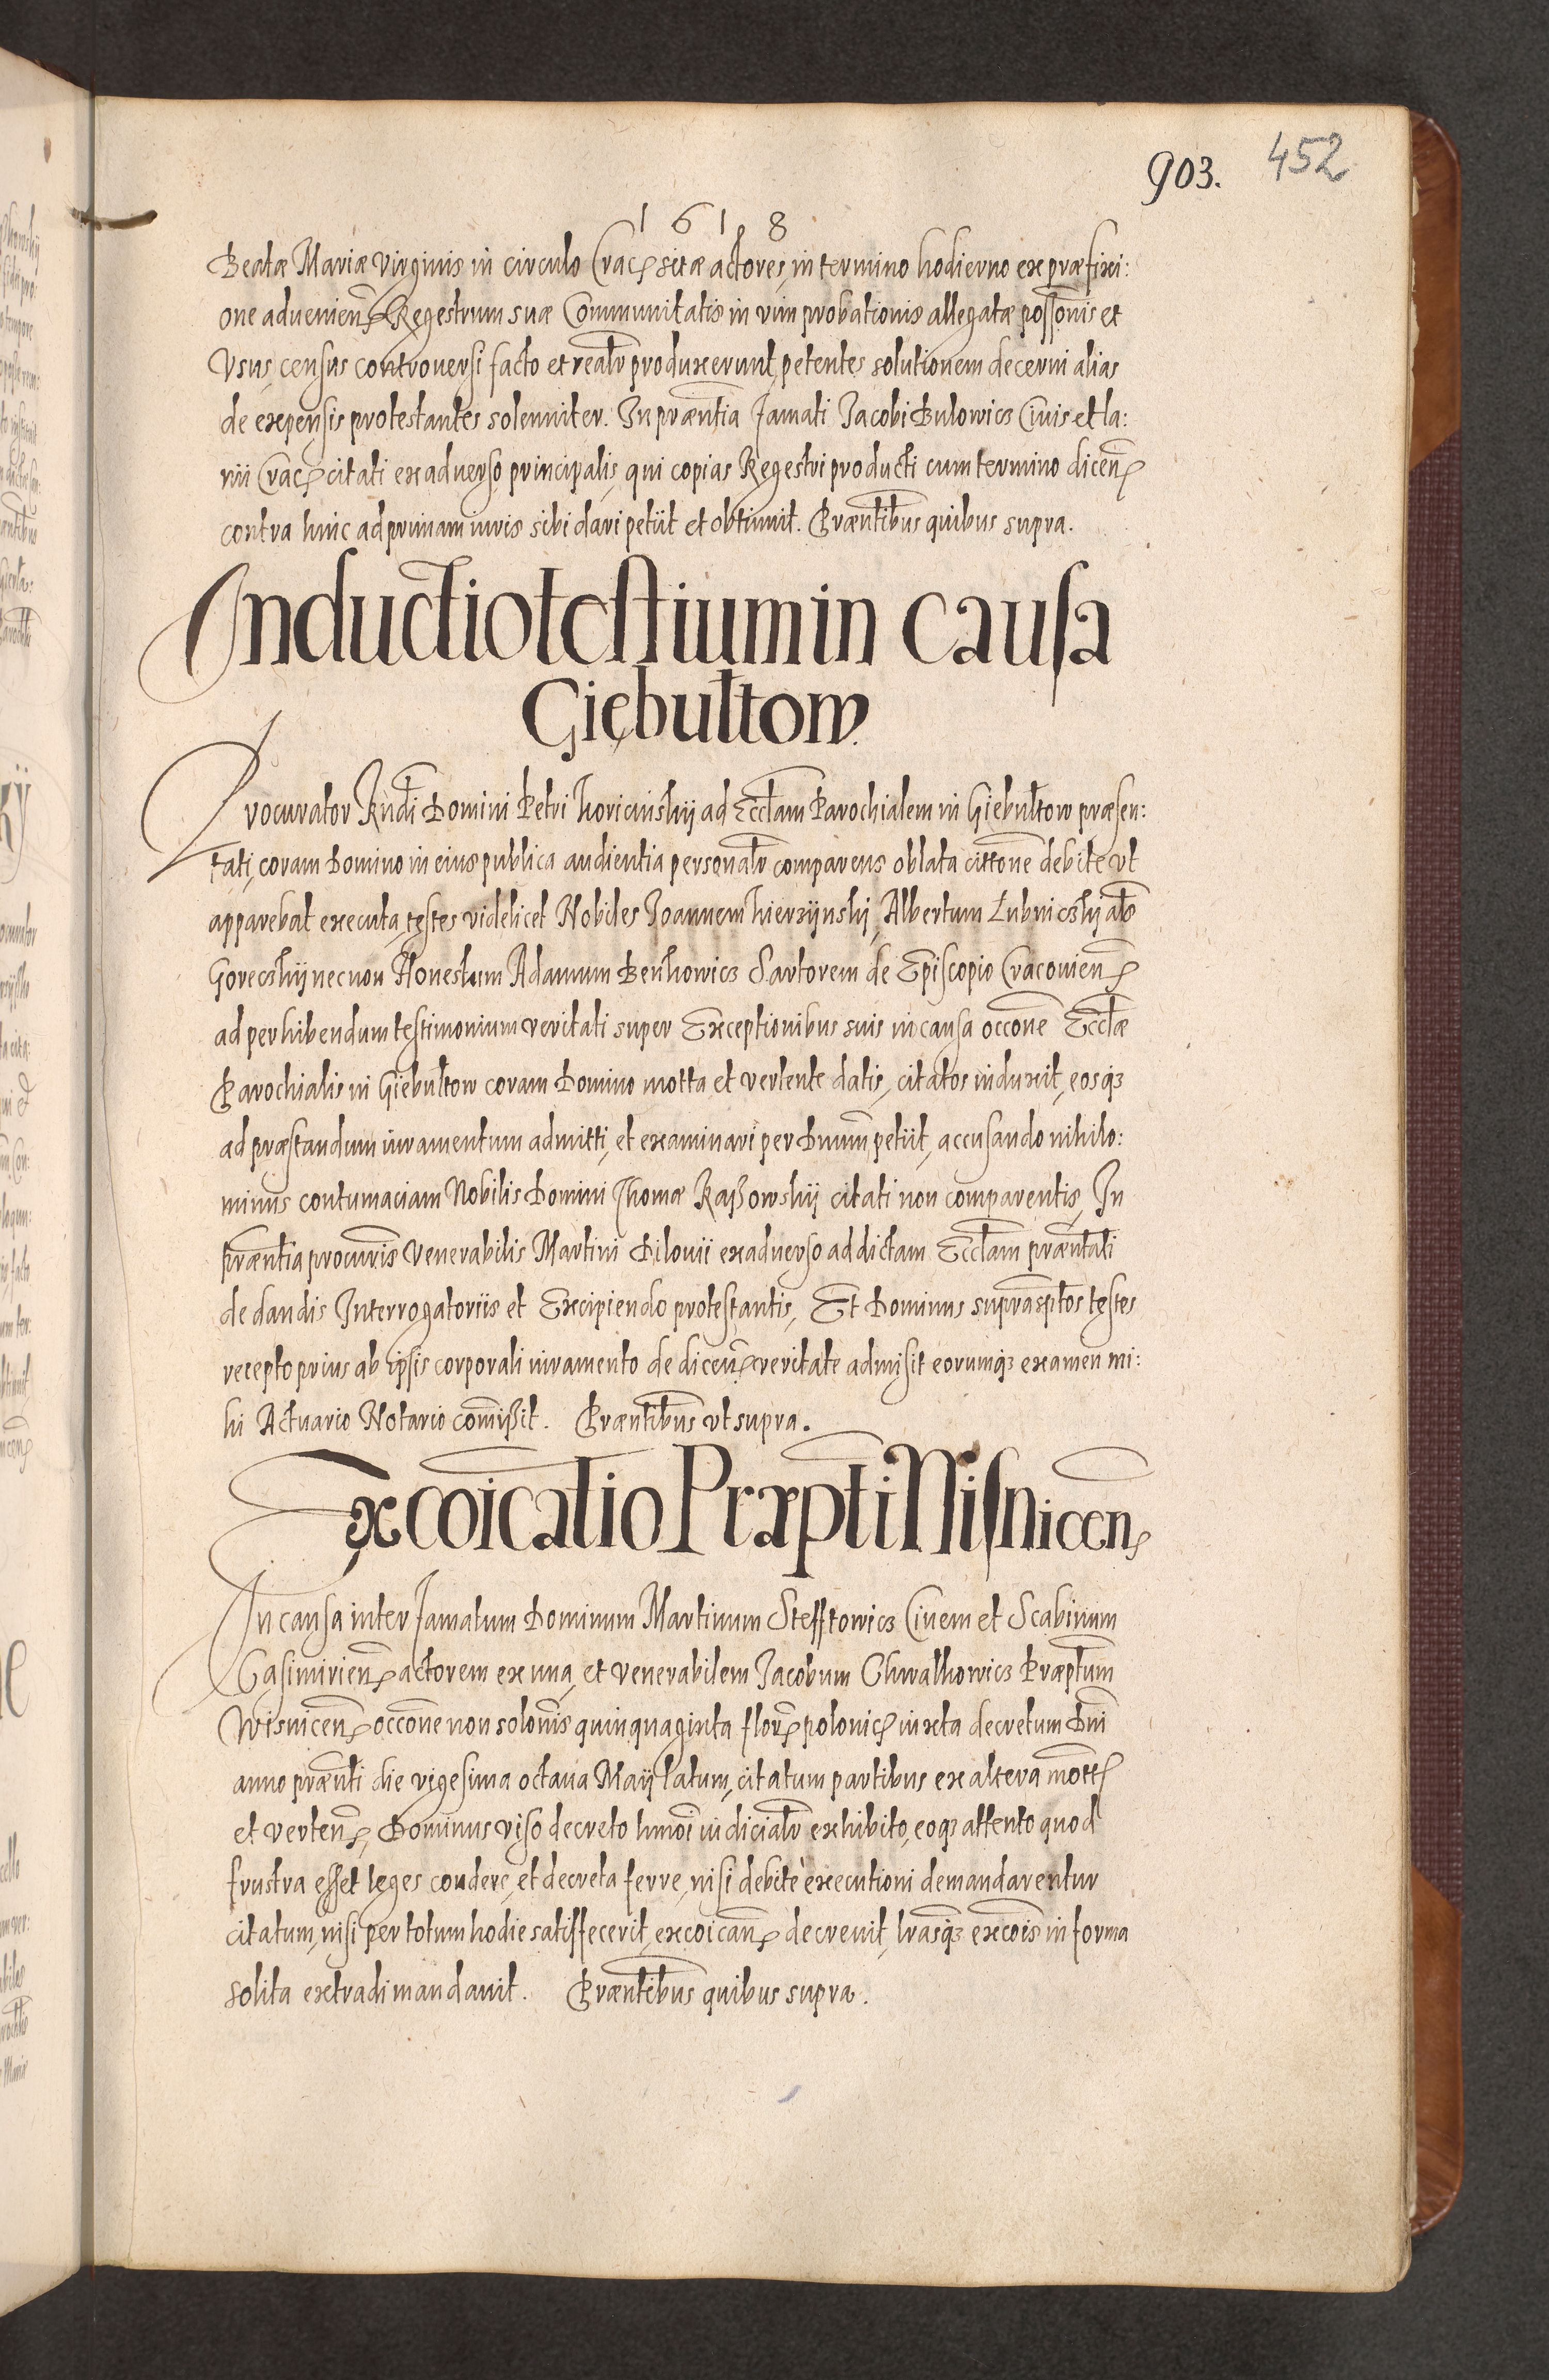 903. 452
1618
Beatæ Mariæ Virginis in circulo Crac: sitæ actores, in termino hodierno ex præfixi:
one aduenien: Regestrum suæ Communitatis in vim probationis allegatæ possonis et
Vsus, census controuersi facto et realr produxerunt, petentes solutionem decerni alias
de expensis protestantes solenniter. In præntia Famati Jacobi Bulowicz Ciuis et la:
nii Crac: citati ex aduerso principalis, qui copias Regestri producti cum termino dicen:
contra hinc ad primam iuris sibi dari petiit et obtinuit. Præntibus quibus supra.
Inductio testium in causa
Giębułtow.
Procurator Rndi Domini Petri Koricinskij ad Ecclam Parochialem in Giebułtow præsen:
tati, coram Domino in eius publica audientia personalr comparens oblata cittone debite vt
apparebat executa, testes videlicet Nobiles Joannem Kierzynskj, Albertum Lubniczkj als
Goreczkij necnon Honestum Adamum Benkowicz Sartorem de Episcopio Cracouien:
ad perhibendum testimonium veritati super Exceptionibus suis in causa occone Ecclæ
Parochialis in Giebułtow coram Domino motta et vertente datis, citatos induxit, eosq3
ad præstandum iuramentum admitti, et examinari per Dnum petiit, accusando nihilo:
minus contumaciam Nobilis Domini Thomæ Kaszowskij citati non comparentis, In
præntia procuris Venerabilis Martini Bilouii ex aduerso ad dictam Ecclam præntati
de dandis Interrogatoriis et Excipiendo protestantis, Et Dominus suprascriptos testes
recepto prius ab ipsis corporali iuramento de dicen: veritate admisit eorumq3 examen mi:
hi Actuario Notario comisit. Præntibus vt supra.
Excoicatio Præpti Wisnicen:
In causa inter Famatum Dominum Martinum Steffkowicz Ciuem et Scabinum
Casimirien: actorem ex una, et venerabilem Jacobum Chwalkowicz Præptum
Wisnicen: occone non solonis quinquaginta flor: polonic: iuxta decretum Dni
anno prænti die vigesima octaua Maij latum, citatum partibus ex altera mott:
et verten: Dominus viso decreto hmoi iudicialr exhibito, eoq3 attento quod
frustra esset leges condere, et decreta ferre, nisi debitè executioni demandarentur
citatum, nisi per totum hodie satisfecerit, excoican: decreuit, lrasq3 excois in forma
solita extradi mandauit. Præntibus quibus supra.